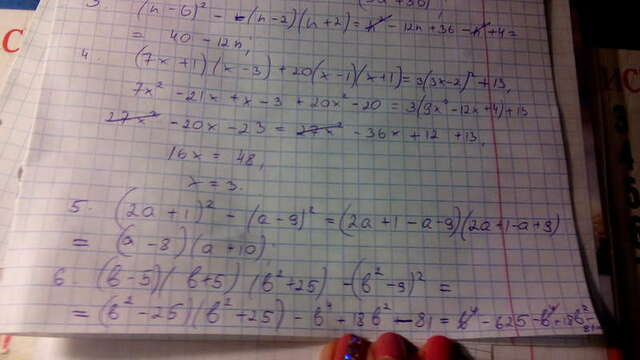 3. (n-6)² - (n-2)(n+2) = n² - 12n + 36 - n² + 4 =
= 40 - 12n;
4. (7x+1)(x-3) + 20(x-1)(x+1) = 3(3x-2)² + 13,
7x² - 21x + x - 3 + 20x² - 20 = 3(9x² - 12x + 4) + 13
27x² - 20x - 23 = 27x² - 36x + 12 + 13,
16x = 48,
x = 3.
5. (2a+1)² - (a-9)² = (2a+1-a-9)(2a+1-a+9)
= (a-8)(a+10).
6. (b-5)(b+5)(b²+25) - (b²-9)² =
= (b²-25)(b²+25) - b⁴ + 18b² - 81 = b⁴ - 625 - b⁴ + 18b² - 81